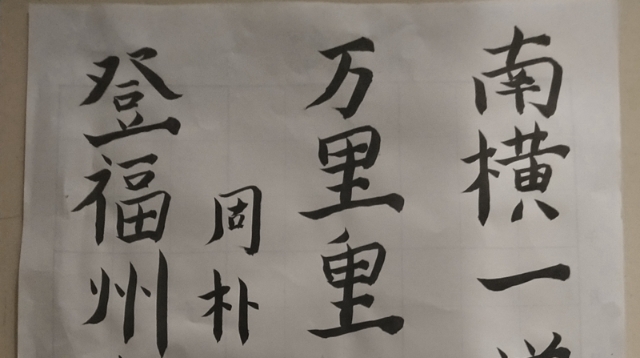 登福州
周朴
万里重
南横一